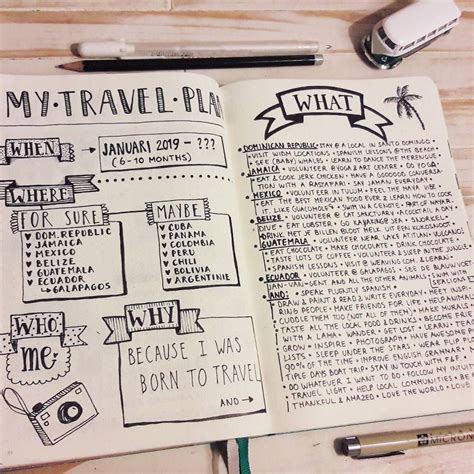 MY·TRAVEL·PLA
WHEN
JANUARI 2019 - ???
(6-10 MONTHS)
WHERE
FOR SURE
DOM. REPUBLIC
JAMAICA
MEXICO
BELIZE
GUATEMALA
ECUADOR
GALAPAGOS
MAYBE
CUBA
PANAMA
COLOMBIA
PERU
CHILI
BOLIVIA
ARGENTINIE
WHO
me
WHY
BECAUSE I WAS
BORN TO TRAVEL
AND
WHAT
DOMINICAN REPUBLIC· STAY @ A LOCAL IN SANTO DOMINGO
VISIT WIDM LOCATIONS · SPANISH LESSONS @ THE BEACH
SEE (BABY) WHALES · LEARN TO DANCE THE MERENGUE
JAMAICA · VOLUNTEER @ YOGA & ART CENTER · DO YOGA
EAT & COOK JERK CHICKEN · HAVE A GOOOOOD CONVERSA-
TION WITH A RASTAFARI · SAY JAMAN EVERYDAY
MEXICO · VOLUNTEER IN TULUM · FEEL THE MAYA VIBE
EAT THE BEST MEXICAN FOOD EVER & LEARN HOW TO COOK
IT LIKE GUACUHOLE · SWIM IN A CENOTE
BELIZE · VOLUNTEER @ CAT SANCTUARY
DIVE · EAT LOBSTER · GO KAYAKING @ SEA · SNORKEL
DRINK HET
GUATEMALA · VOLUNTEER NEAR LAKE ATITLAN
EAT CHOCOLATE · MAKE CHOCOLATE · DRINK CHOCOLATE
TASTE LOTS OF COFFEE · VOLCANO
SPANISH LESSONS · VISIT @ WEAVING
ECUADOR · VOLUNTEER @ GALAPAGOS · SEE DE BLAUWVOET
JAN-VAN-GENT AND ALL THE OTHER
AND: · SPEAK FLUENTLY SPANISH
DRAW & PAINT & READ & WRITE EVERYDAY · MEET INSPI-
RING PEOPLE · MAKE FRIENDS FOR LIFE · HELP ANIMALS
CUDDLE THEM TOO (NOT ALL OF THEM)
TASTE ALL THE LOCAL FOOD & DRINKS
WITH A LOCAL · WANDER · GET LOST · LEARN
GROW · INSPIRE · PHOTOGRAPH · HAVE AWESOME
LISTS · SLEEP UNDER THE STARS · WEAR FLIP
90% OF THE TIME · IMPROVE ENGLISH GRAMMAR
TIPLE DAYS BOAT TRIP · STAY IN TOUCH WITH F&F
DO WHATEVER I WANT TO DO · FOLLOW MY INTUITION
TRAVEL LIGHT · HELP LOCAL COMMUNITIES · BE
THANKFUL & AMAZED · LOVE THE WORLD